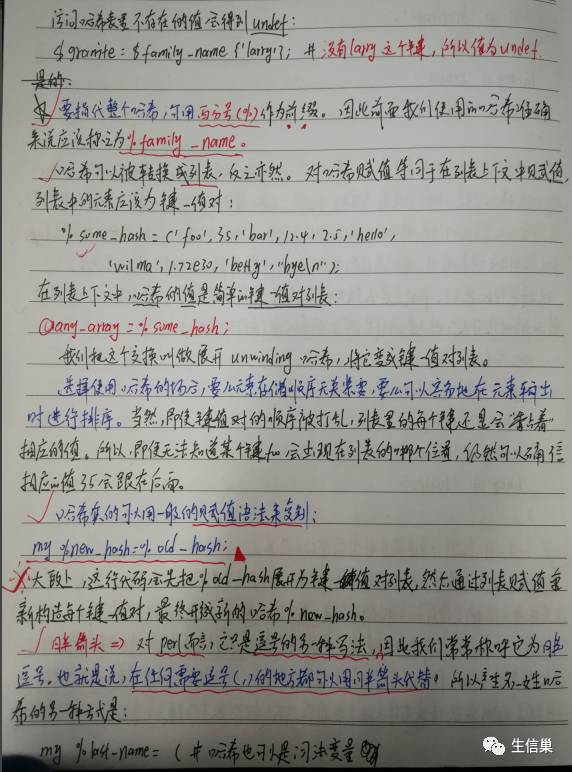 访问哈希表里不存在的值会得到undef:
$granite = $family_name{'larry'}; # 没有larry这个键，所以值为undef.
是的:
要指代整个哈希，可用百分号(%)作为前缀。因此前面我们使用的哈希准确
来说应该称之为%family_name。
哈希可以被转换成列表，反之亦然。对哈希赋值等同于在列表上下文中赋值，
列表中的元素应该为键-值对:
%some_hash = ('foo', 35, 'bar', 12.4, 2.5, 'hello',
'wilma', 1.72e30, 'betty', "bye\n");
在列表上下文中，哈希的值是简单的键-值对列表:
@any_array = %some_hash;
我们把这个变换叫做展开unwinding哈希，将它变成键-值对列表。
选择使用哈希的场合，要么元素存储顺序无关紧要，要么可以容易地在元素输出
时进行排序。当然，即使键值对的顺序被打乱，列表里的每个键还是会"粘着"
相应的值。所以，即使无法知道某个键foo会出现在列表的哪个位置，仍然可以确信
相应的值35会跟在后面。
哈希真的可以用一般的赋值语法来复制:
my %new_hash = %old_hash;
大致上，这行代码会先把%old_hash展开为键值对列表，然后通过列表赋值重
新构造每个键-值对，最终形成新的哈希%new_hash。
胖箭头 => 对perl而言，它只是逗号的另一种写法，因此我们常常称呼它为胖
逗号。也就是说，在任何需要逗号(,)的地方都可以用胖箭头代替。所以产生名-姓哈
希的另一种方式是:
my %last_name = ( # 哈希也可以是词法变量
生信巢